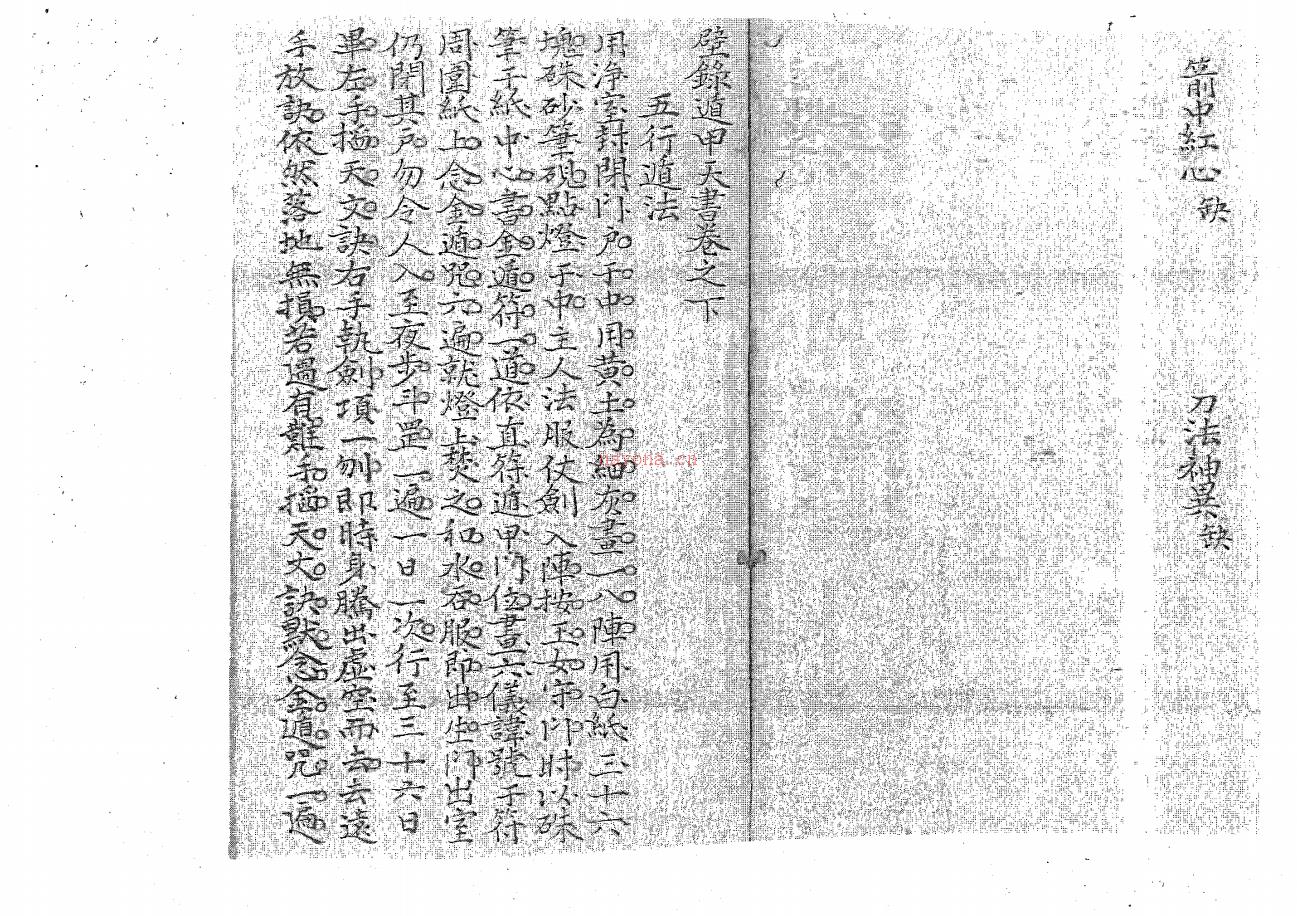 箭中紅心 缺
刀法神異 缺
壁錄遁甲天書卷之下
五行遁法
用淨室封閉門戶于中用黃土為細灰畫一八陣用白紙三十六
塊硃砂筆硯點燈于中主人法服仗劍入陣按玉女守門时以硃
筆于紙中心書金遁符一道依直符遁甲门位畫六儀諱號于符
周圍紙上念金遁咒六遍就燈上焚之和水吞服即出生门出室
仍閉其戶勿令人入至夜步斗罡一遍一日一次行至三十六日
畢左手掐天文訣右手執劍項一刎即時身騰出虛空而去去遠
手放訣依然落地無損若遇有難手掐天文訣默念金遁咒一遍
nayona.cn